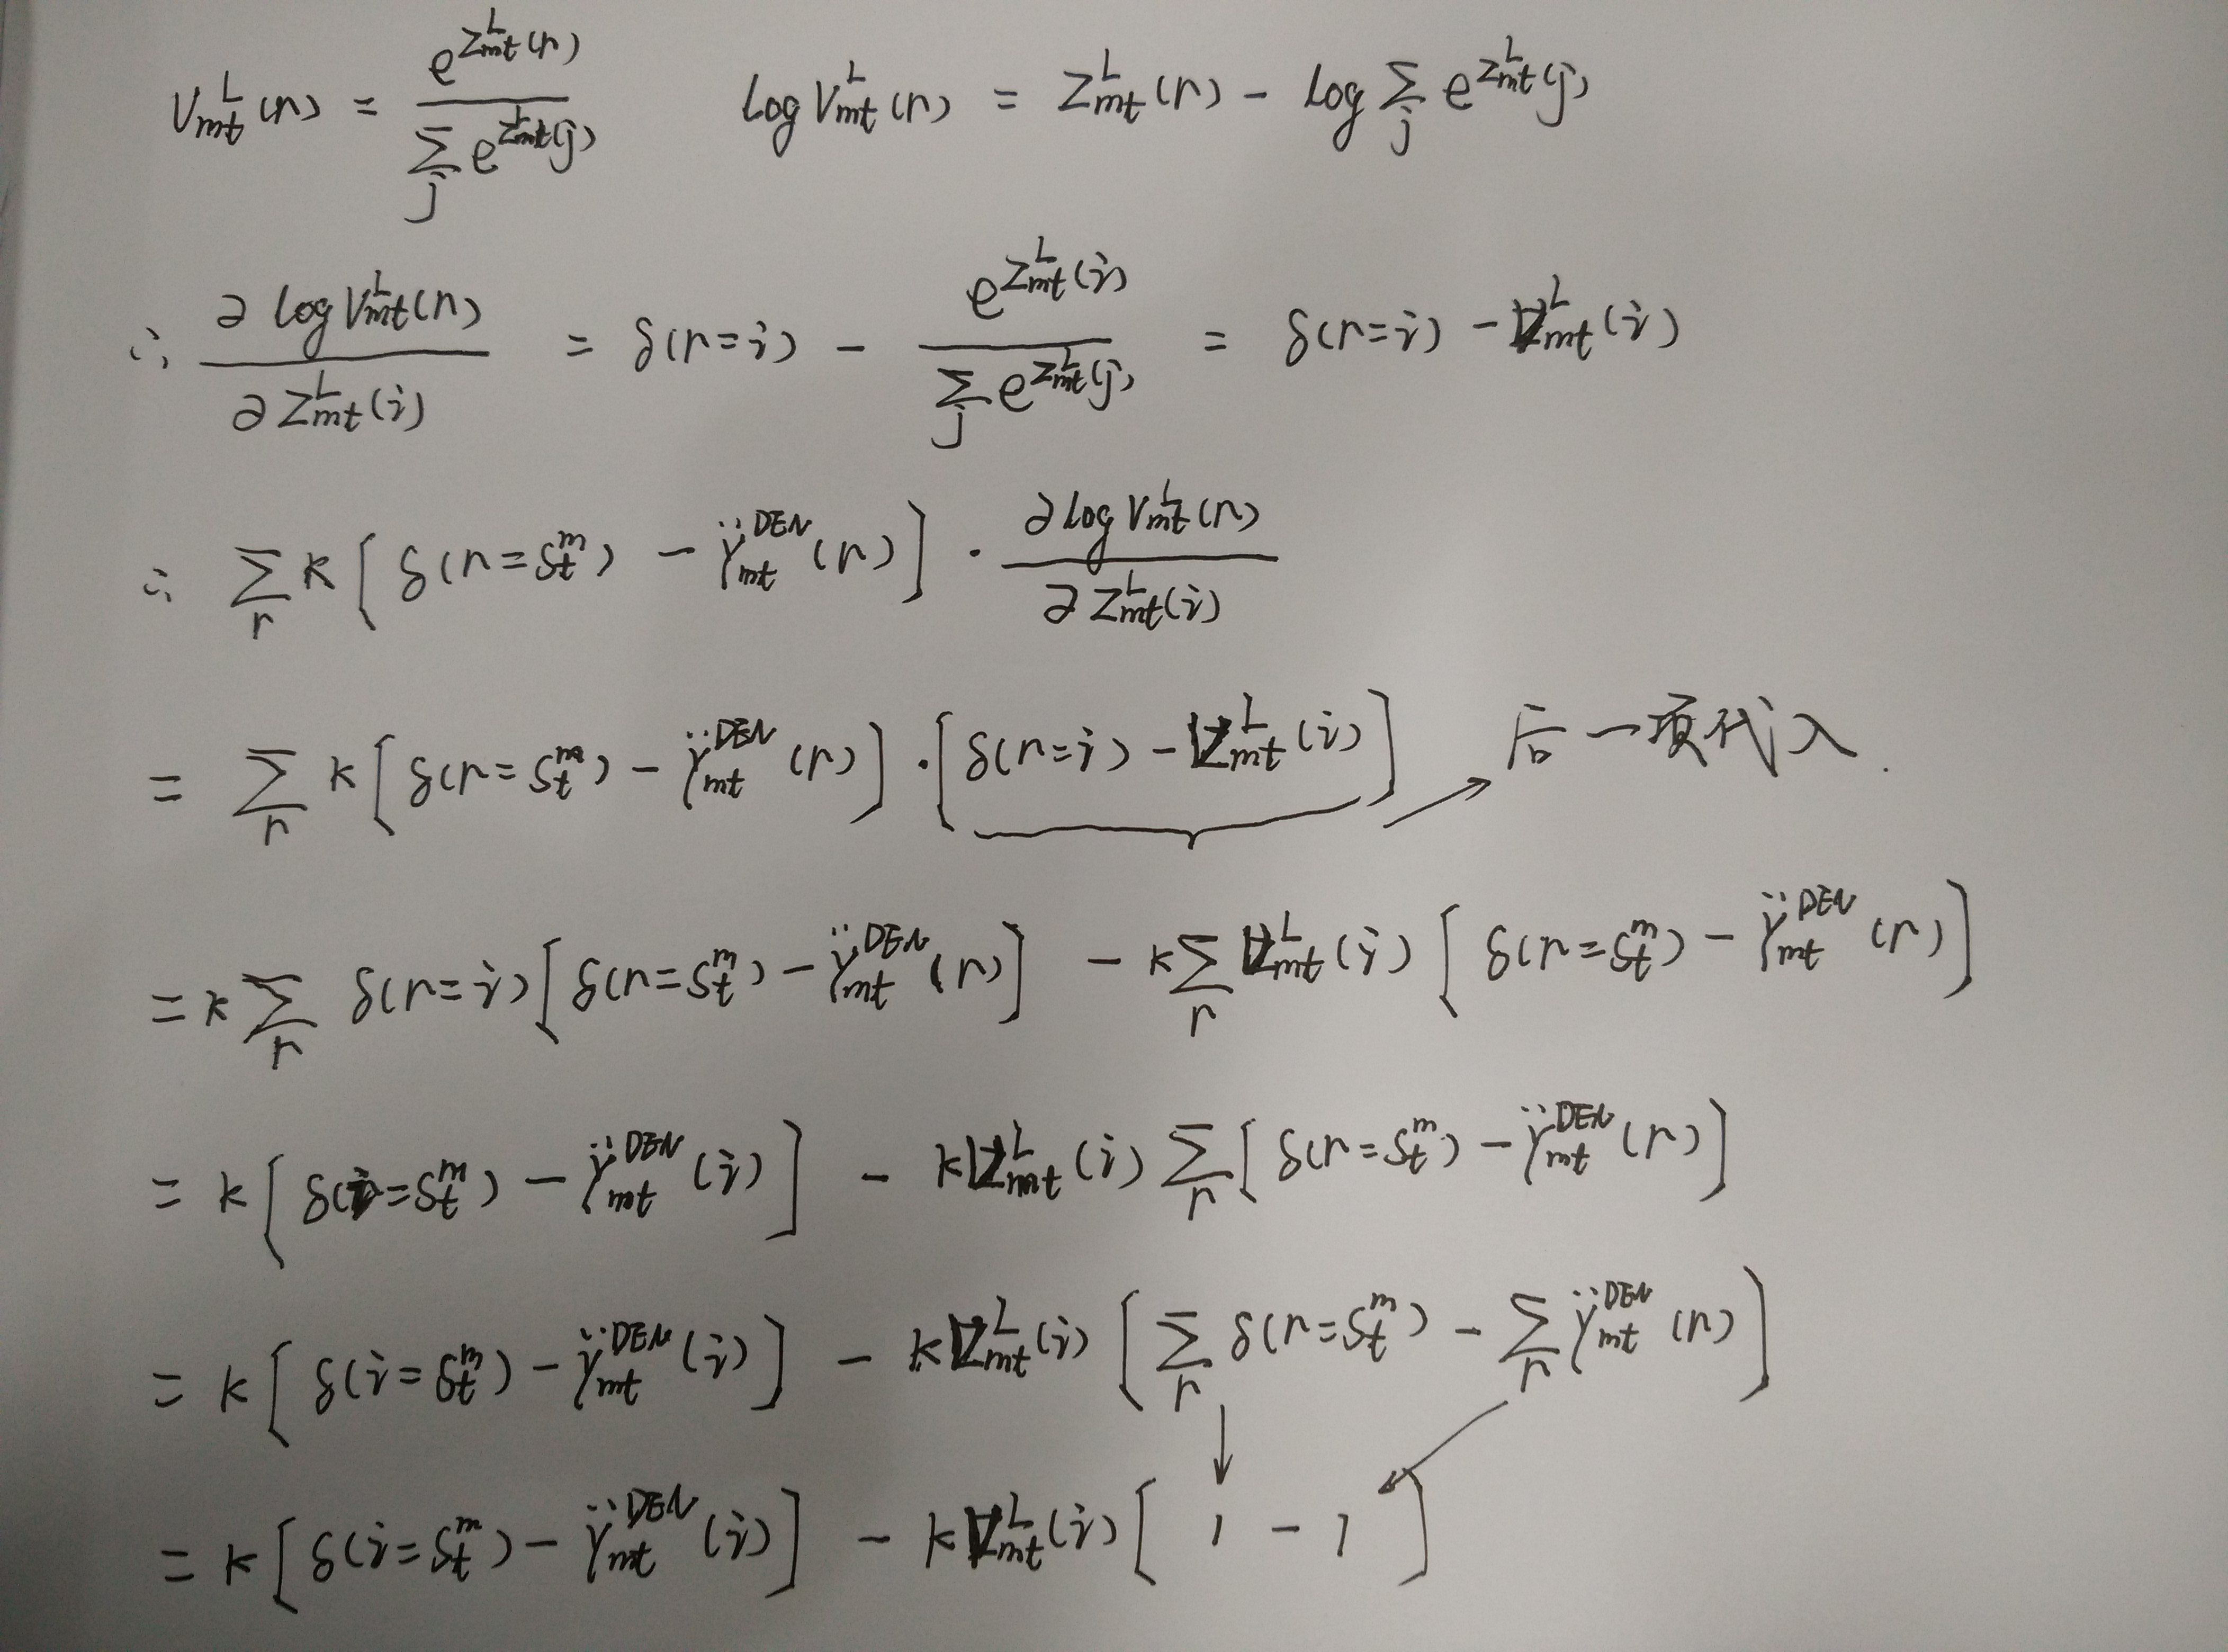 $v_{mt}^{L}(r) = \frac{e^{z_{mt}^{L}(r)}}{\sum_j e^{z_{mt}^{L}(j)}}$ $\log v_{mt}^{L}(r) = z_{mt}^{L}(r) - \log \sum_j e^{z_{mt}^{L}(j)}$
$\therefore \frac{\partial \log v_{mt}^{L}(r)}{\partial z_{mt}^{L}(i)} = \delta(r=i) - \frac{e^{z_{mt}^{L}(i)}}{\sum_j e^{z_{mt}^{L}(j)}} = \delta(r=i) - v_{mt}^{L}(i)$
$\therefore \sum_r k \left[ \delta(r=s_t^m) - \ddot{\gamma}_{mt}^{DEN}(r) \right] \cdot \frac{\partial \log v_{mt}^{L}(r)}{\partial z_{mt}^{L}(i)}$
$= \sum_r k \left[ \delta(r=s_t^m) - \ddot{\gamma}_{mt}^{DEN}(r) \right] \cdot \left[ \delta(r=i) - v_{mt}^{L}(i) \right]$ 后一项代入.
$= k \sum_r \delta(r=i) \left[ \delta(r=s_t^m) - \ddot{\gamma}_{mt}^{DEN}(r) \right] - k \sum_r v_{mt}^{L}(i) \left[ \delta(r=s_t^m) - \ddot{\gamma}_{mt}^{DEN}(r) \right]$
$= k \left[ \delta(i=s_t^m) - \ddot{\gamma}_{mt}^{DEN}(i) \right] - k v_{mt}^{L}(i) \sum_r \left[ \delta(r=s_t^m) - \ddot{\gamma}_{mt}^{DEN}(r) \right]$
$= k \left[ \delta(i=s_t^m) - \ddot{\gamma}_{mt}^{DEN}(i) \right] - k v_{mt}^{L}(i) \left[ \sum_r \delta(r=s_t^m) - \sum_r \ddot{\gamma}_{mt}^{DEN}(r) \right]$
$= k \left[ \delta(i=s_t^m) - \ddot{\gamma}_{mt}^{DEN}(i) \right] - k v_{mt}^{L}(i) \left[ 1 - 1 \right]$